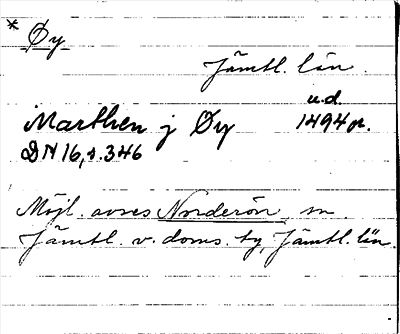 * Øy
Jämtl. län.
u.d.
Marthen j Øy 1494 or.
DN 16, s. 346
Möjl. avses Norderön, sn.
Jämtl. v. doms. tg, Jämtl. län.